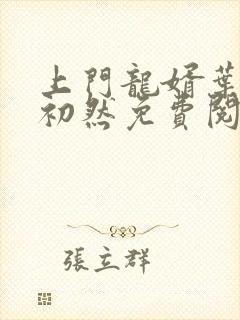 上門龍婿葉
初然免費閱
張立群